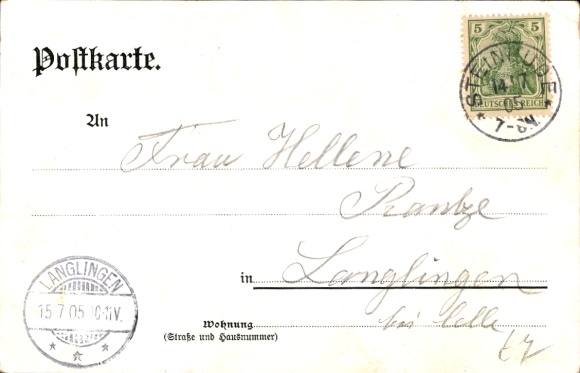 Postkarte.
5 5
DEUTSCHES REICH
STEINHUDE
14. 7
05
7-8N.
An
Frau Hellene
Rantze
in Langlingen
bei Celle
Wohnung
(Straße und Hausnummer)
LANGLINGEN
15.7.05. 10-11V.